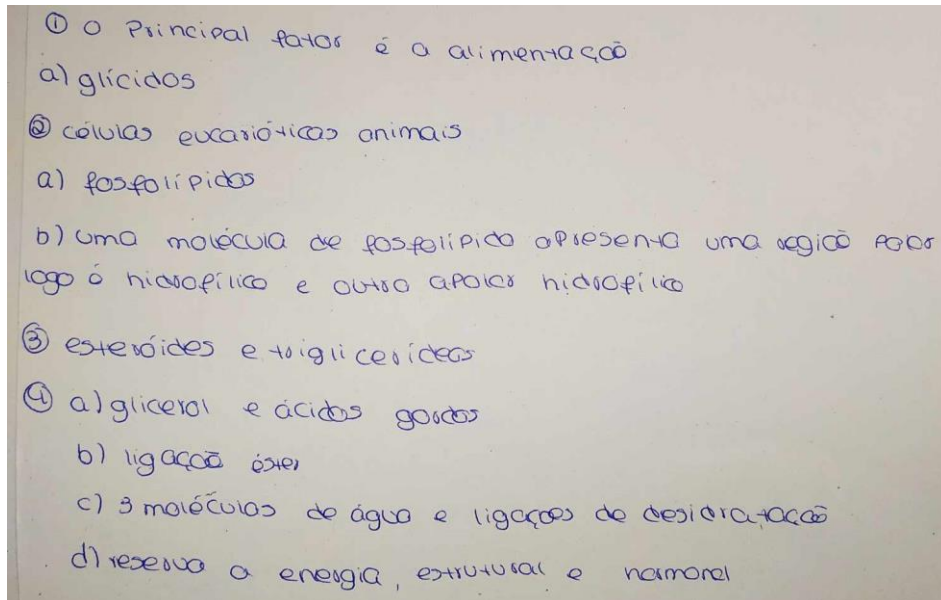 ① O Principal fator é a alimentação
a) glícidos
② células eucarióticas animais
a) fosfolípidos
b) uma molécula de fosfolípido apresenta uma região polar
logo é hidrofílico e outro apolar hidrofílico
③ esteróides e triglicerídeos
④ a) glicerol e ácidos gordos
b) ligação éster
c) 3 moléculas de água e ligações de desidratação
d) reserva a energia, estrutural e hormonal